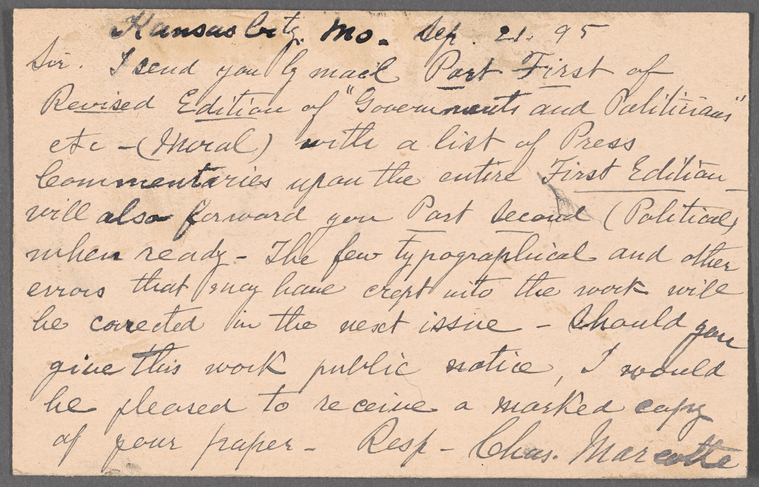 Kansas City, Mo. Sep. 21. 95
Sir. I send you by mail Part First of
Revised Edition of "Governments and Politicians"
etc - (Moral) with a list of Press
Commentaries upon the entire First Edition -
will also forward you Part Second (Political)
when ready - The few typographical and other
errors that may have crept into the work will
be corected in the next issue - Should you
give this work public notice, I would
be pleased to receive a marked copy
of your paper - Resp - Chas. Marcotte